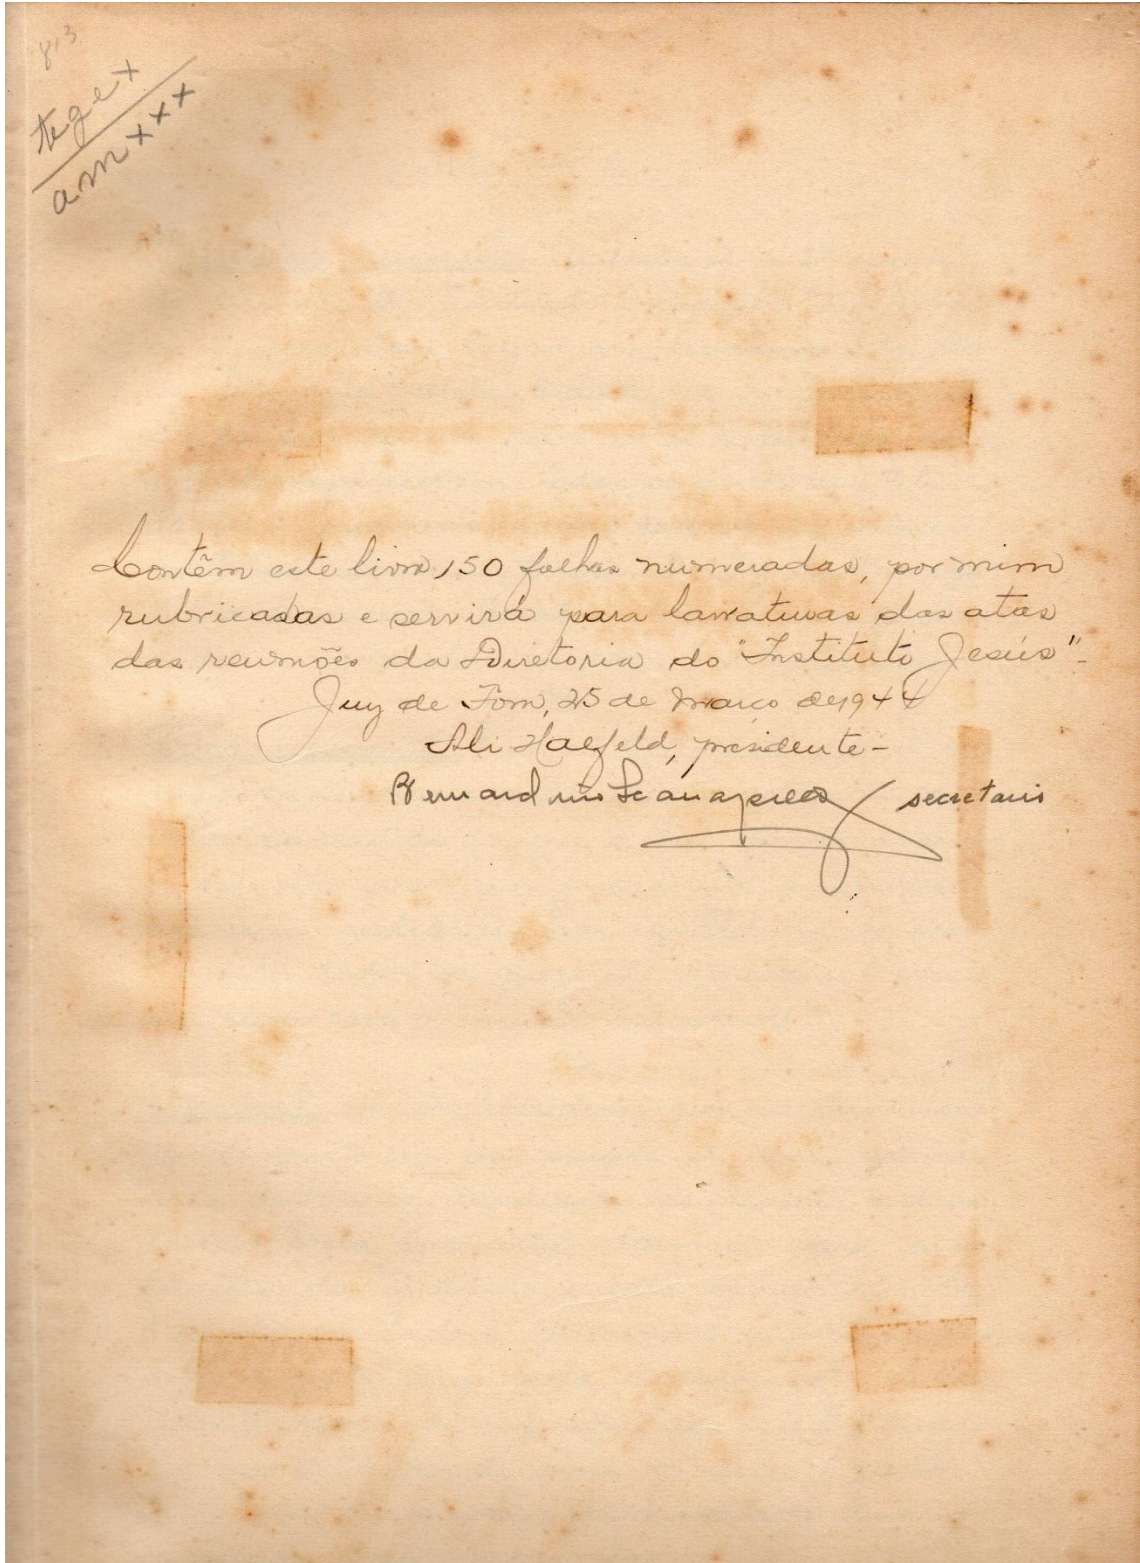 813
tegex
amxxx
Contêm este livro 150 folhas numeradas, por mim
rubricadas e servirá para lavraturas das atas
das reuniões da Diretoria do "Instituto Jesús"-
Juiz de Fora, 25 de Março de 1944
Ali Halfeld, presidente-
Bernardino secretario